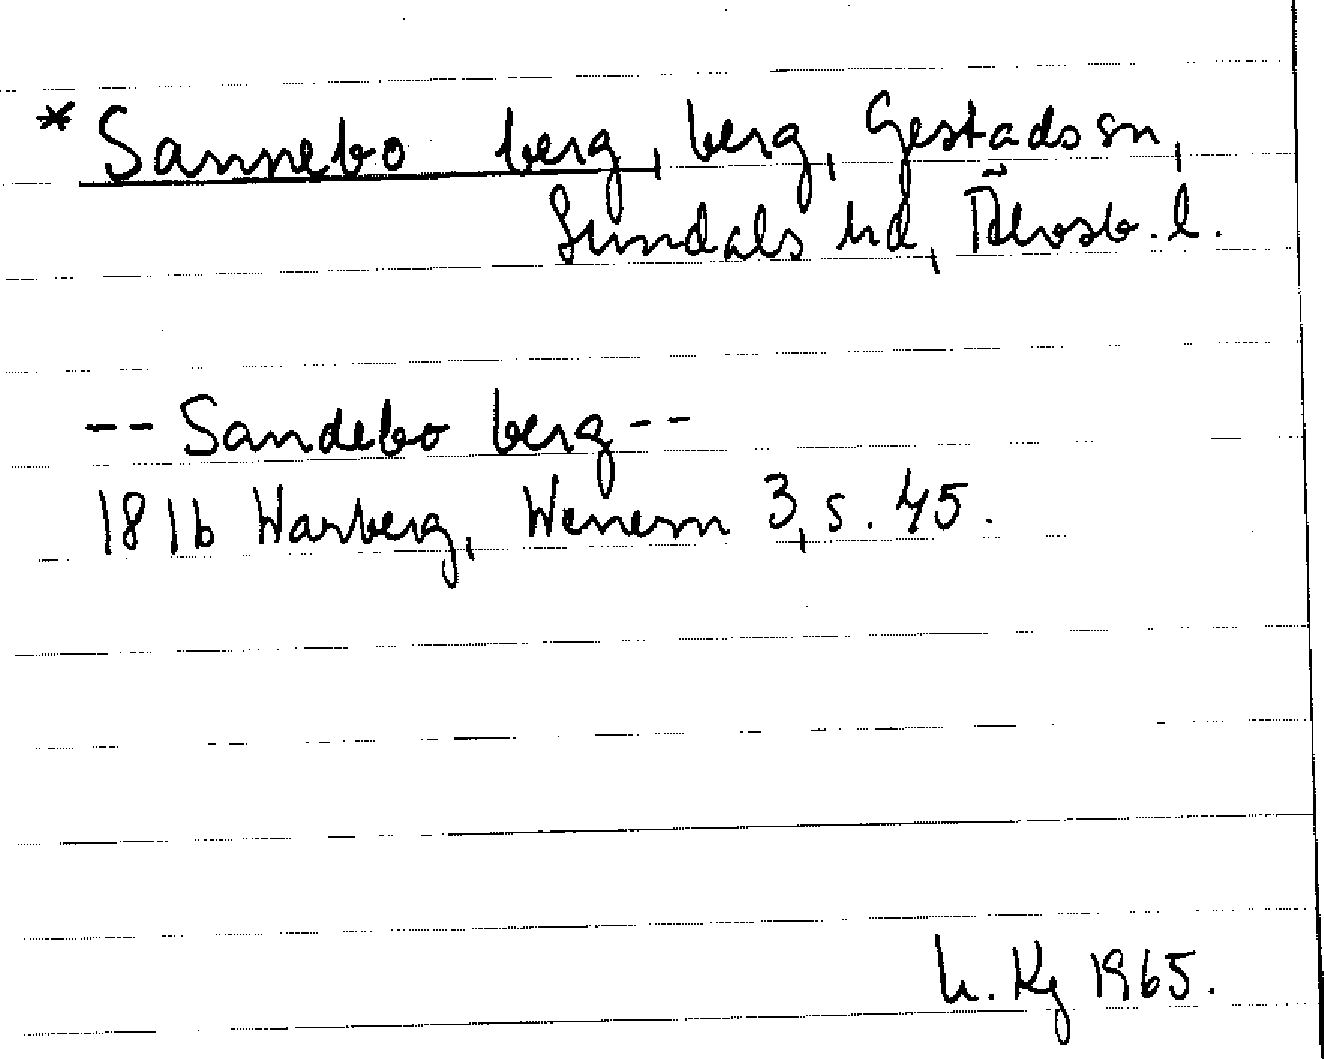 * Sannebo berg, berg, Gestads sn,
Sundals hd, Älvsb. l.
-- Sandebo berg --
1816 Warberg, Wenern 3, s. 45.
h. Kg 1965.